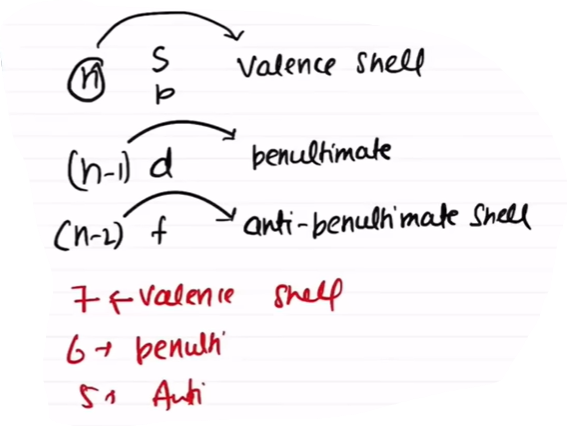 n s valence shell
p
(n-1) d penultimate
(n-2) f anti-penultimate shell
7 ← valence shell
6 → penulti
5 → Anti